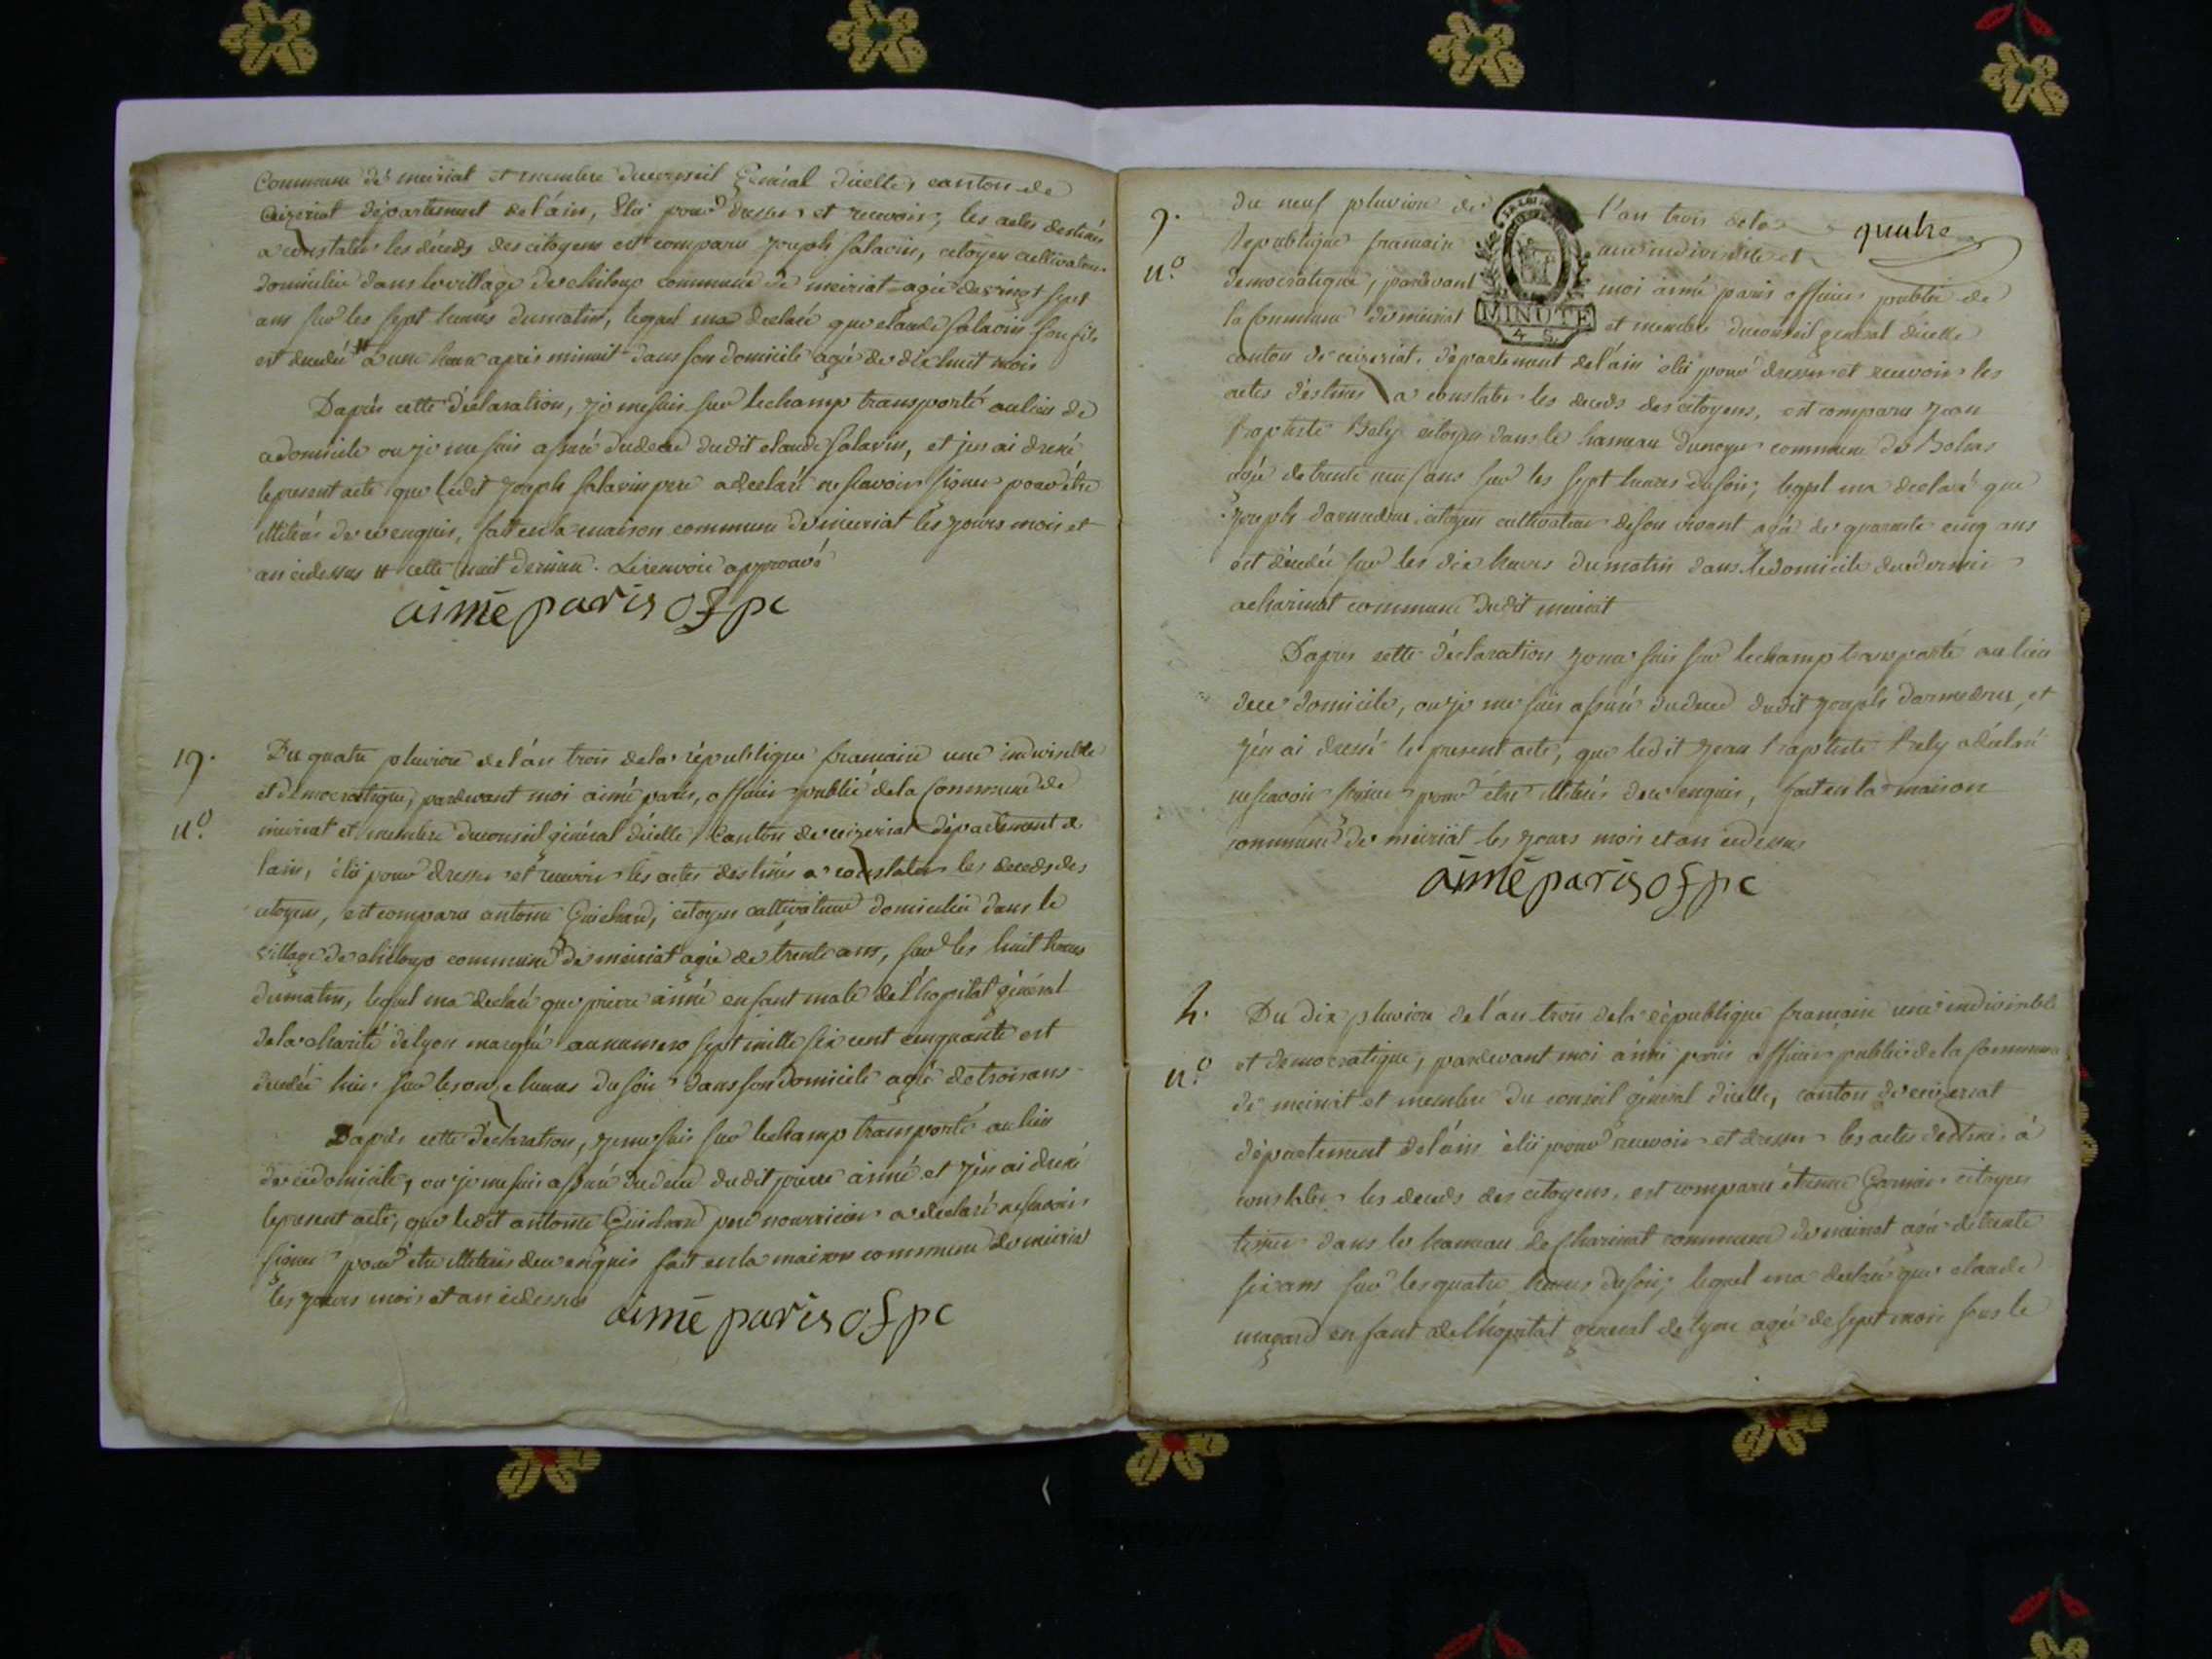 Commune de meiriat et membre du conseil Général d'icelle, canton de
Ceizeriat département de l'ain, Elû pour dresser et recevoir, les actes destinés
a constater les déceds des citoyens est comparu joseph salavin, citoyen cultivateur
domicilié dans le village de chiloup commune de meiriat agée de vingt sept
ans sur les sept heures du matin, lequel ma declaré que claude salavin son fils
est decedé # a une heure apres minuit dans son domicile agé de dix huit mois
D'aprés cette déclaration, je me suis sur le champ transporté au lieu de
ce domicile ou je me suis assuré du deces dudit claude salavin, et jen ai dressé
le present acte que ledit joseph salavin pere a declaré ne scavoir signer pour étre
illiteré de ce enquis, fait en la maison commune de meiriat les jours mois et
an cidessus # cette nuit derniere. Le renvoi approuvé
aimé paris of pc
19.
n.°
Du quatre pluviose de l'an trois de la république francaise une indivisible
et democratique, pardevant moi aimé paris, officier public de la commune de
meiriat et membre du conseil général d'icelle, Canton de ceizeriat département de
l'ain, élû pour dresser et recevoir les actes destinés a constater les deceds des
citoyens, est comparu antoine Guichard, citoyen cultivateur domicilié dans le
village de chiloup commune de meiriat agé de trente ans, sur les huit heures
du matin, lequel ma declaré que pierre aimé enfant male de l'hopital général
de la charité de lyon marqué au numero sept mille six cent cinquante est
decedé hier sur les onze heures du soir dans son domicile agé de trois ans
D'aprés cette déclaration, je me suis sur le champ transporté au lieu
de ce domicile, ou je me suis assuré du deces dudit pierre aimé et j'en ai dressé
le present acte, que ledit antoine Guichard pere nourricier a declaré ne scavoir
signer pour étre illiteré de ce enquis fait en la maison commune de meiriat
les jours mois et an cidessus
aimé paris of pc
9.
n.°
du neuf pluviose de l'an trois de la
quatre
Republique francaise une indivisible et
democratique, pardevant moi aimé paris officier public de
la commune de meiriat et membre du conseil general d'icelle
MINUTE
4 S.
canton de ceizeriat, département de l'ain élû pour dresser et recevoir les
actes déstinés a constater les deceds des citoyens, est comparu jean
baptiste Bely citoyen dans le hameau du noyer commune de Bohas
agé de trente neuf ans sur les sept heures du soir; lequel ma declaré que
joseph darmedrus citoyen cultivateur de son vivant agé de quarante cinq ans
est décedé sur les dix heures du matin dans le domicile de ce dernier
a charinat commune dudit meiriat
D'apres cette déclaration je me suis sur le champ transporté au lieu
de ce domicile, ou je me suis assuré du deces dudit joseph darmedrus, et
j'en ai dressé le present acte, que ledit jean baptiste bely a déclaré
ne scavoir signer pour étre illiteré de ce enquis, fait en la maison
commune de meiriat les jours mois et an cidessus
aimé paris of pc
h.
n.°
Du dix pluviose de l'an trois de la république francaise une indivisible
et democratique, pardevant moi aimé paris officier public de la commune
de meiriat et membre du conseil général d'icelle, canton de ceizeriat
département de l'ain élû pour recevoir et dresser les actes destinés à
constater les deceds des citoyens, est comparu étienne Garnier citoyen
tissier dans le hameau de charinat commune de meiriat agé de trente
six ans sur les quatre heures du soir; lequel ma declaré que claude
magard enfant de l'hopital general de lyon agé de sept mois sous le